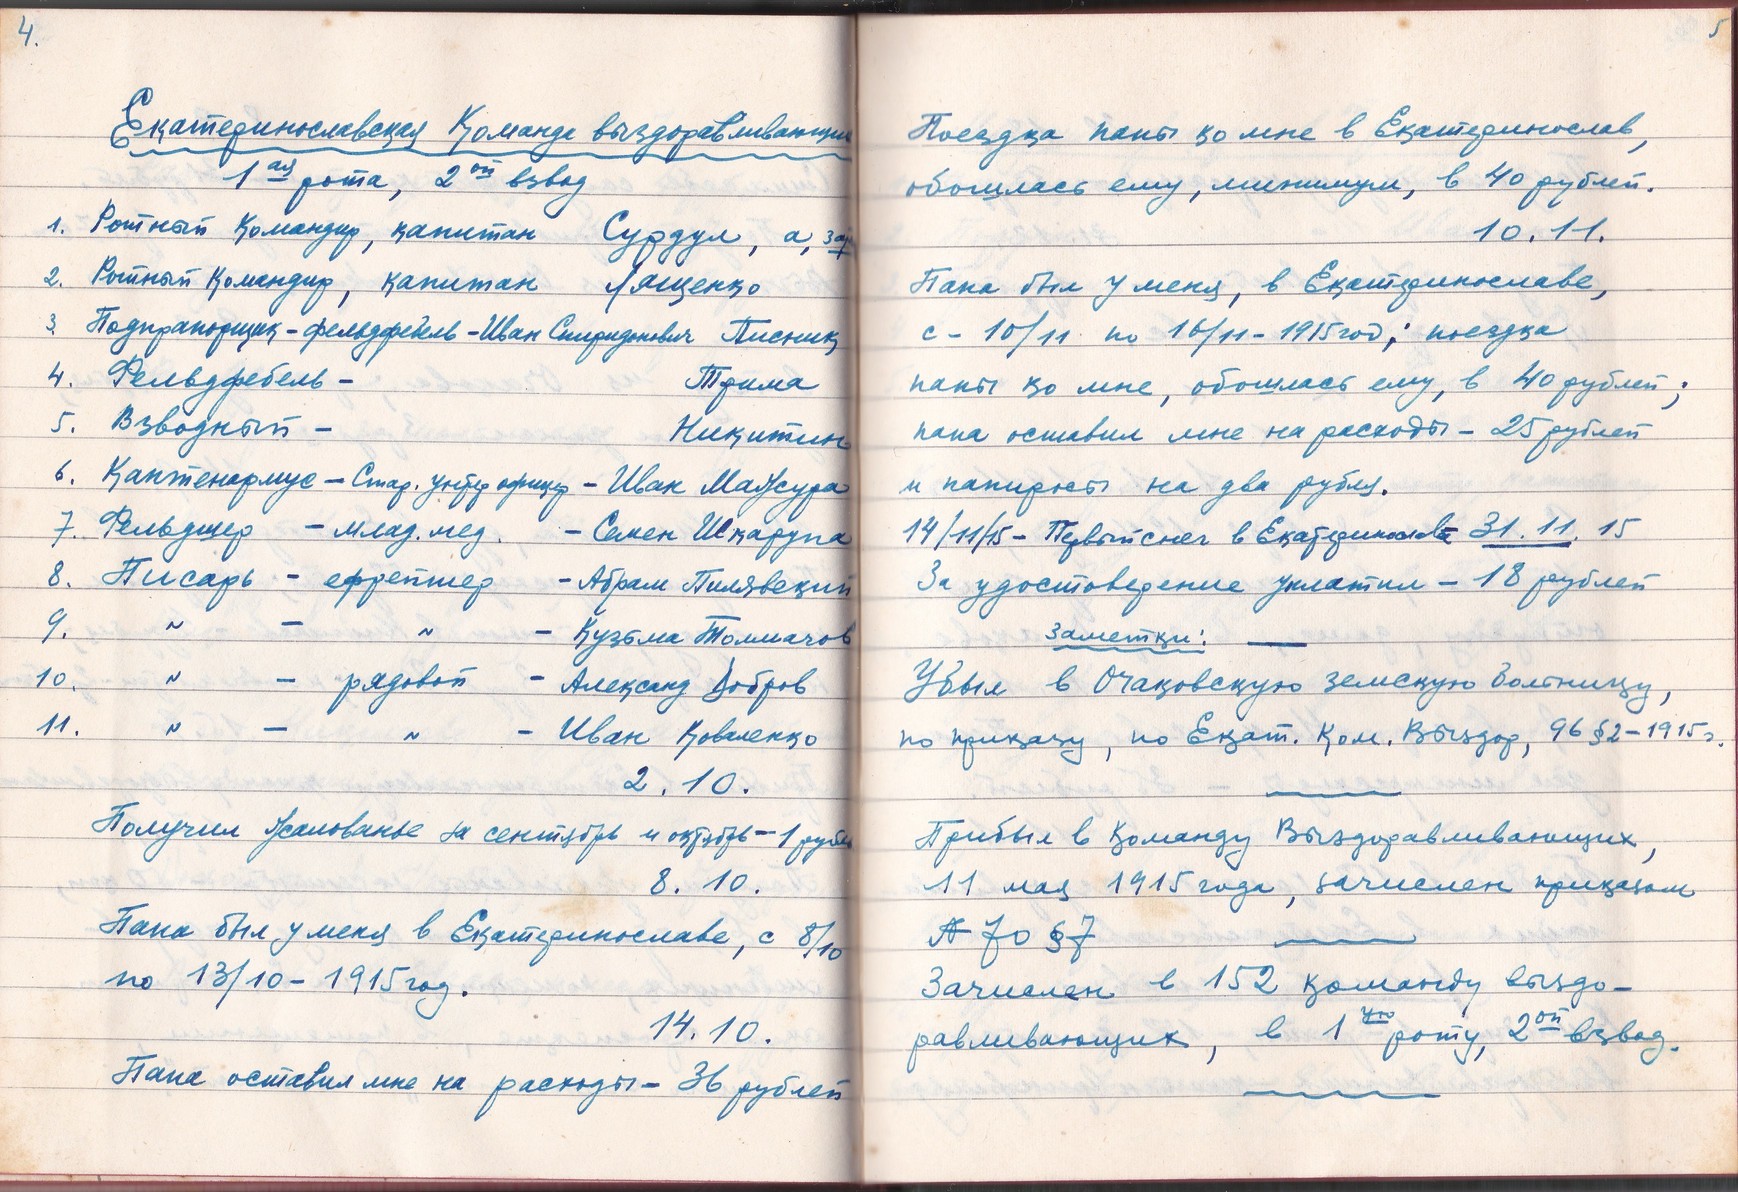 4.
Екатеринославская Команда выздоравливающих
1ая рота, 2ой взвод
1. Ротный Командир, капитан Сурдул, а,
2. Ротный Командир, капитан Лященко
3. Подпрапорщик - фельдфебель - Иван Спиридонович Писник
4. Фельдфебель - Трима
5. Взводный - Никитин
6. Каптенармус - Стар. унтер офицер - Иван Мажура
7. Фельдшер - млад. мед. - Семен Шкарупа
8. Писарь - ефрейтер - Абрам Пилявский
9. " - " - Кузьма Толмачов
10. " - рядовой - Александ Добров
11. " - " - Иван Коваленко
2.10.
Получил жалованье за сентябрь и октябрь - 1 рубль
8.10.
Папа был у меня в Екатеринославе, с 8/10
по 13/10 - 1915 год.
14.10.
Папа оставил мне на расходы - 36 рублей
5
Поездка папы ко мне в Екатеринослав,
обошлась ему, минимум, в 40 рублей.
10.11.
Папа был у меня, в Екатеринославе,
с - 10/11 по 16/11 - 1915 год; поездка
папы ко мне, обошлась ему, в 40 рублей;
папа оставил мне на расходы - 25 рублей
и папиросы на два рубля.
14/11/15 - Первый снег в Екатеринославе 31.11.15
За удостоверение уплатил - 18 рублей
Заметки: —
Убыл в Очаковскую земскую больницу,
по приказу, по Екат. Ком. Выздор, 96 §2 - 1915 г.
Прибыл в Команду Выздоравливающих,
11 мая 1915 года, зачислен приказом
А 70 §7
Зачислен в 152 команду выздо-
равливающих, в 1ую роту, 2ой взвод.